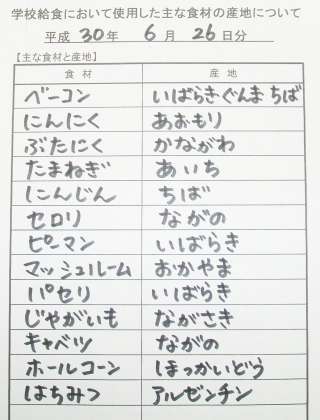 学校給食において使用した主な食材の産地について
平成 30 年 6 月 26 日分
【主な食材と産地】
食材 産地
ベーコン いばらきぐんまちば
にんにく あおもり
ぶたにく かながわ
たまねぎ あいち
にんじん ちば
セロリ ながの
ピーマン いばらき
マッシュルーム おかやま
パセリ いばらき
じゃがいも ながさき
キャベツ ながの
ホールコーン ほっかいどう
はちみつ アルゼンチン